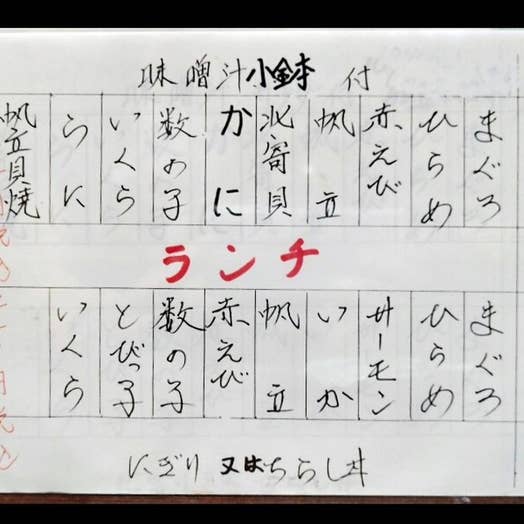 味噌汁小鉢 付
まぐろ
ひらめ
赤えび
帆立
北寄貝
かに
数の子
いくら
うに
帆立貝焼
ランチ
まぐろ
ひらめ
サーモン
いか
帆立
赤えび
数の子
とびっ子
いくら
にぎり 又はちらし丼